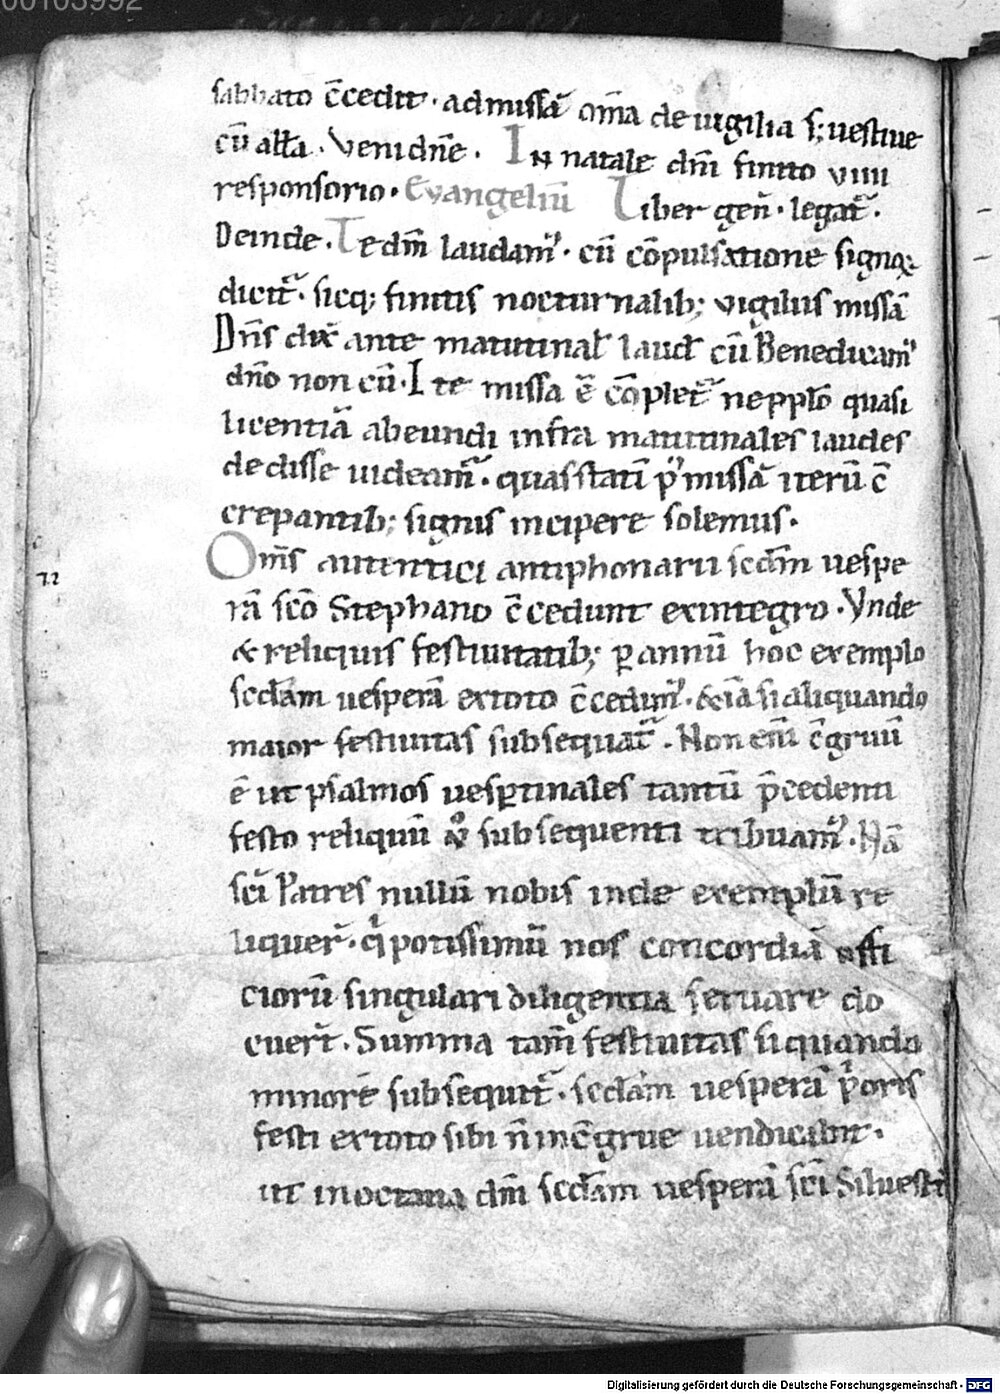 00103992
sabbato c̄cedit · ad missā om̄a de uigilia s; uestiue
cū all̄a · Veni dn̄e · In natale dn̄i finito viiii
responsorio · Evangeliū Liber gen̄ · legat᷑ ·
Deinde · Te dm̄ laudam᷒ · cū cōpulsatione signoꝝ
dicit᷑ · sicq; finitis nocturnalib; vigiliis missā
Dn̄s dix̄ ante matutinal̄ laud̄ cū Benedicam᷒
dn̄o non cū · Ite missa ē cōplet᷑ ne pplō quasi
licentiā abeundi infra matutinales laudes
dedisse uideam᷒ · quas statī p᷒ missā iterū c̄
crepantib; signis incipere solemus ·
Om̄s autentici antiphonarii scd̄am uespe
rā sc̄o Stephano c̄cedunt ex integro · Vnde
& reliquis festiuitatib; ꝑ annū hoc exemplo
scd̄am uesperā ex toto c̄cedim᷒ · &iā si aliquando
maior festiuitas subsequat᷑ · Non eni̅ c̄gruū
ē ut psalmos uesꝑtinales tantū p̄cedenti
festo reliquū u᷒ subsequenti tribuam᷒ · Nā
sc̄i Patres nullū nobis inde exemplū re
liquer̄ · qͥ potissimū nos concordiā offi
ciorū singulari diligentia seruare do
cuer̄t · Summa tam̄ festiuitas si quando
minorē subsequit᷑ · scd̄am uesperā pͥoris
festi ex toto sibi n̄ inc̄grue uendicabit ·
ut in octaua dn̄i scd̄am uesperā sc̄i Siluestri
72
Digitalisierung gefördert durch die Deutsche Forschungsgemeinschaft - DFG